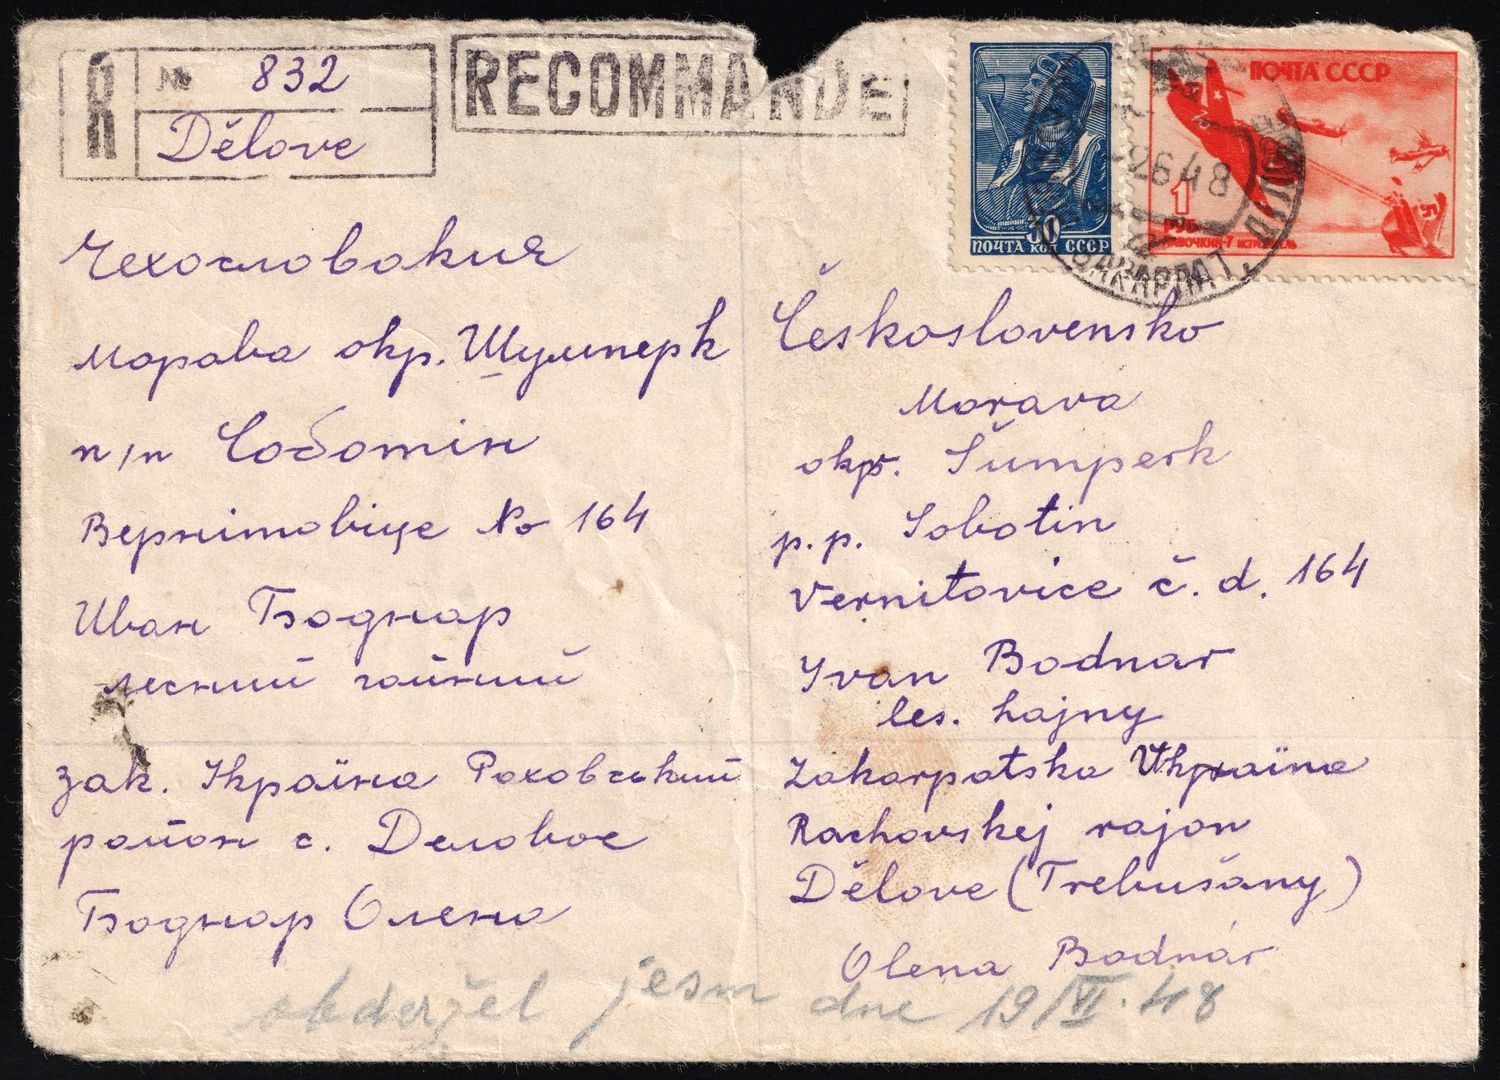 R
№ 832
Dĕlove
RECOMMANDE
30
ПОЧТА КОП СССР
ПОЧТА СССР
1
РУБ
ЛАВОЧКИН-7 ИСТРЕБИТЕЛЬ
2648
ЗАКАРПАТ.
Чехословакия
Морава окр. Шумперк
п/п Соботін
Вернітовіце No 164
Иван Боднар
лесний гайний
Зак. Україна Раховський
район с. Деловое
Боднар Олена
Československo
Morava
okr. Šumperk
p.p. Sobotin
Vernitovice č. d. 164
Ivan Bodnar
les. hajny
Zakarpatska Ukraïna
Rachovskej rajon
Dĕlove (Trebušany)
Olena Bodnár
obderžel jesm dne 19/VI.48